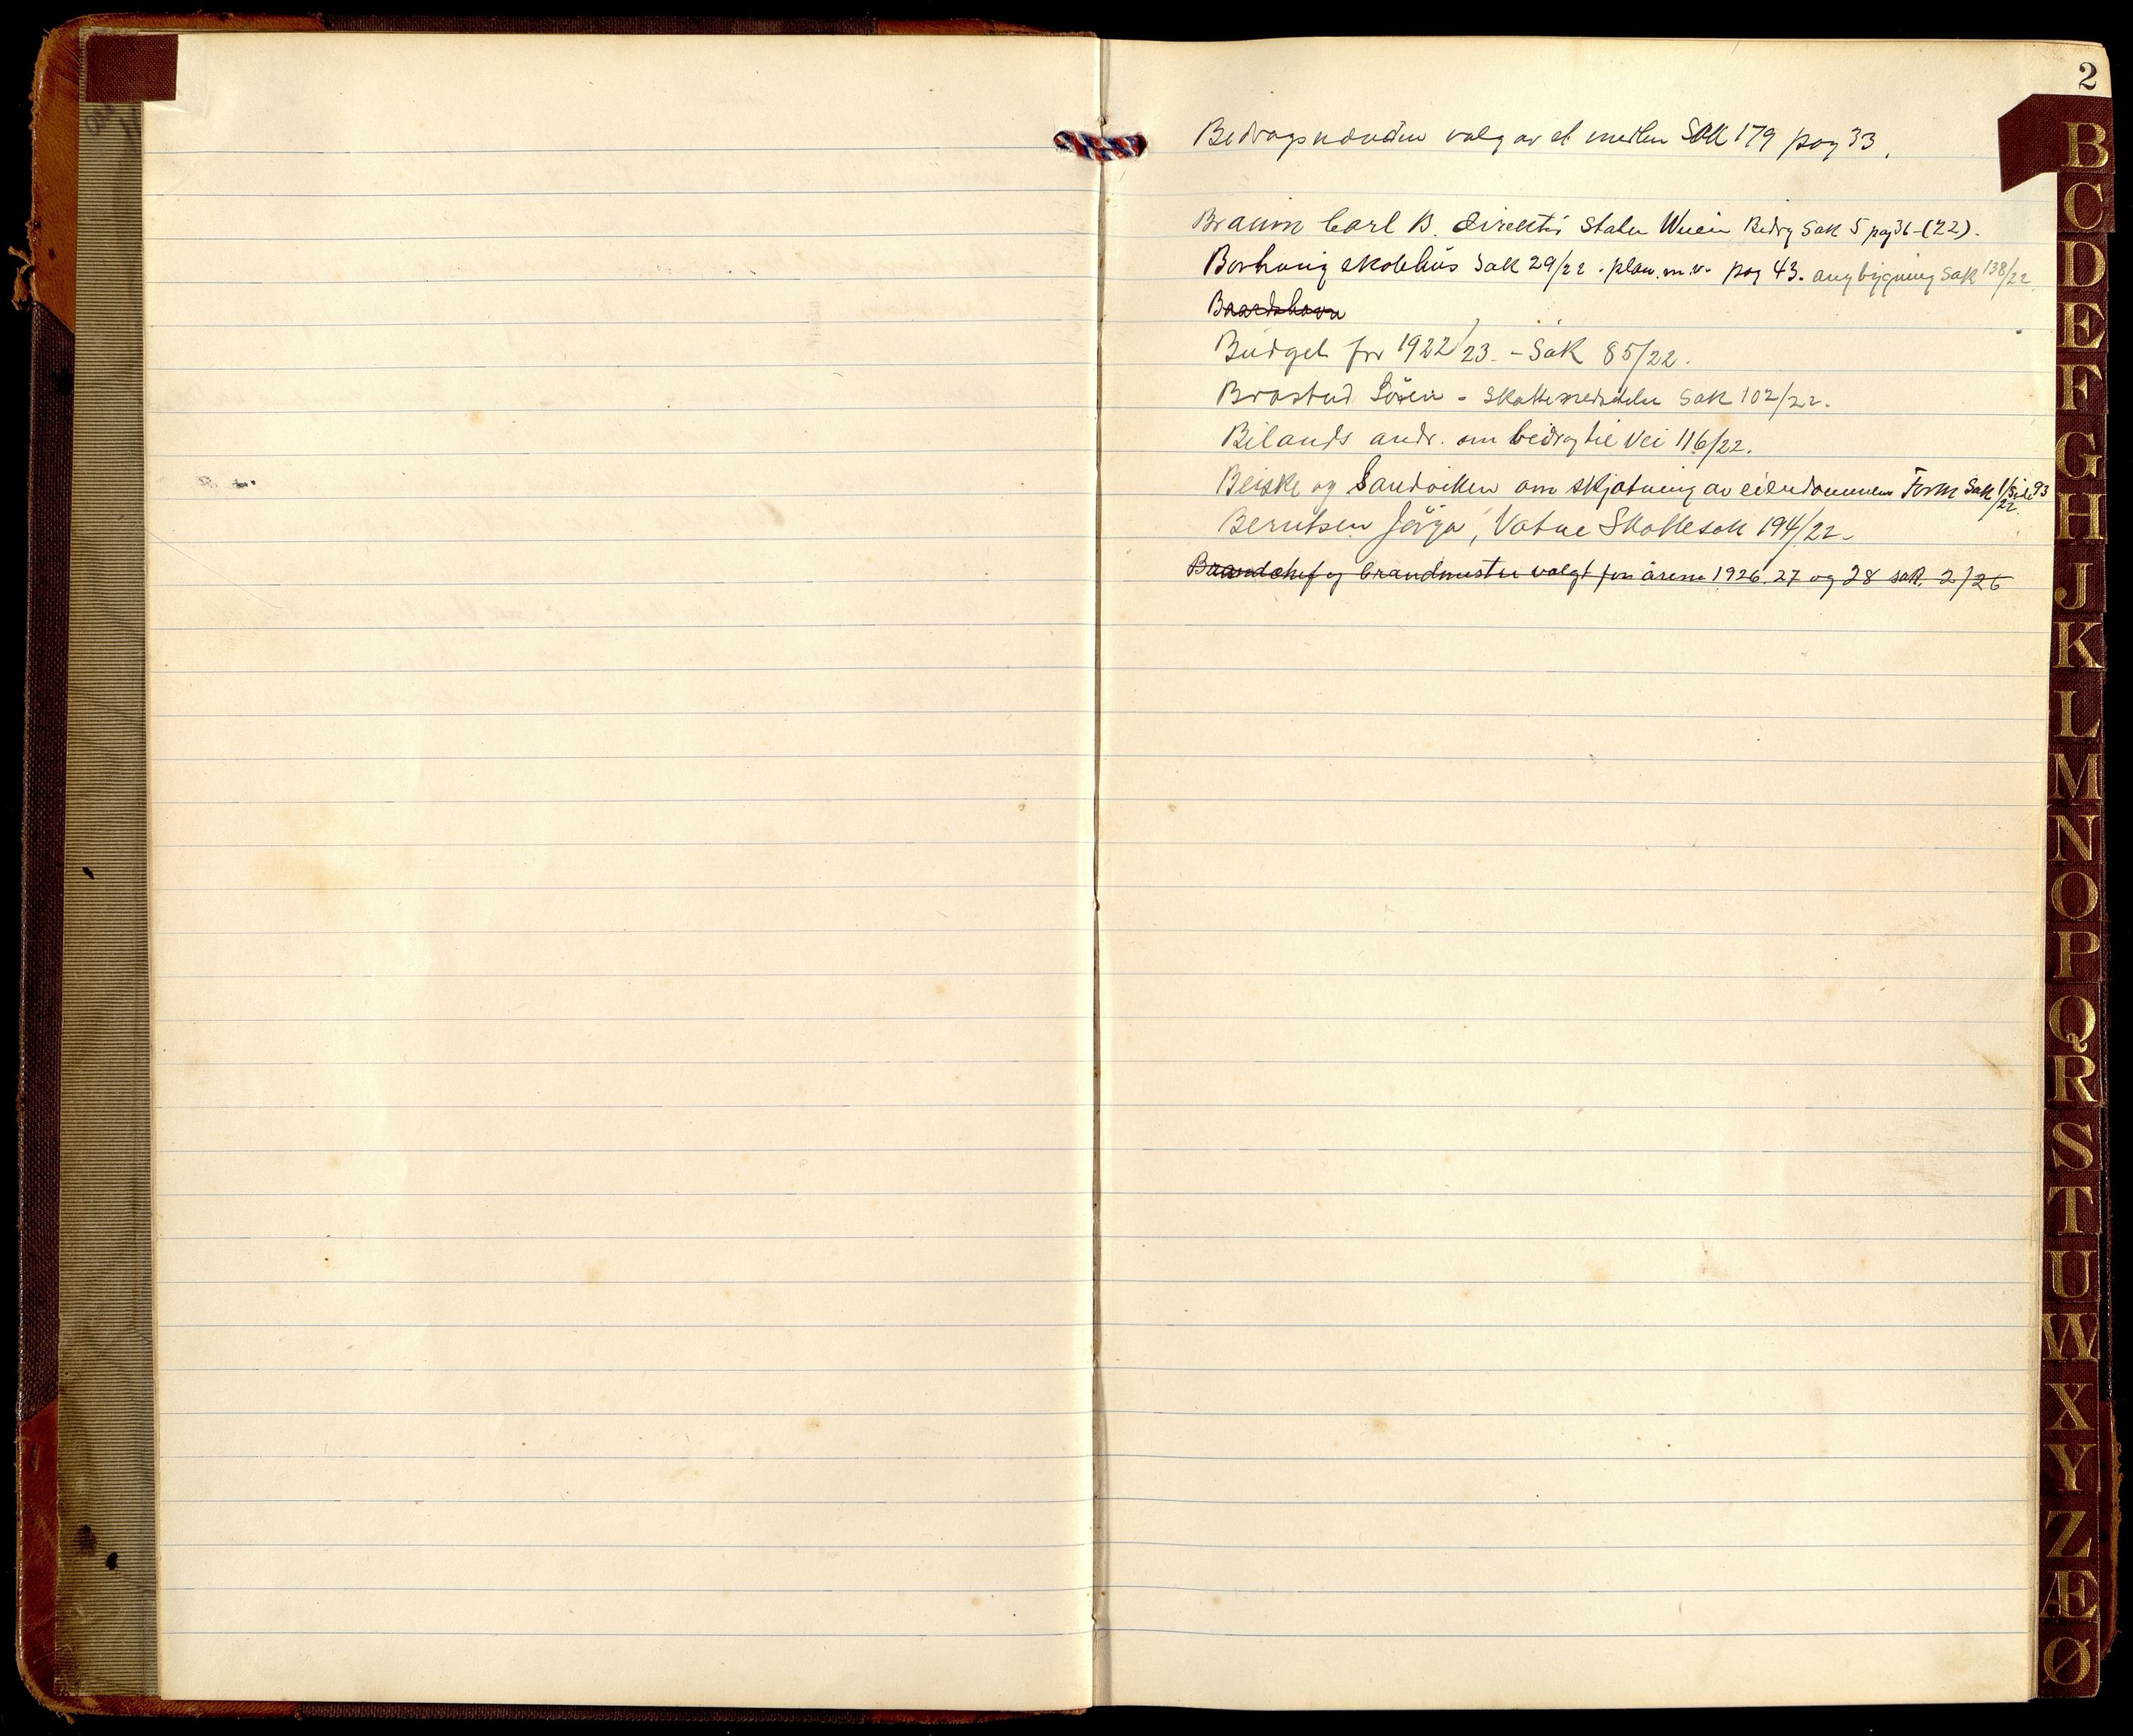 2
Bedragsnævnden valg av et medlem Sak 179 pag 33.
Braun Carl B. direktör Staten Wien Bidrag Sak 5 pag 36-(22).
Borhaug skolehus Sak 29/22. plan. m.v. pag 43. ang bygning Sak 138/22
Baardshavn
Budget for 1922/23. - Sak 85/22.
Brastad Sören - Skattemeddelu Sak 102/22.
Bilands andr. om bidrag til Vei 116/22.
Beiske og Sandviken om skjötning av eiendommen Form Sak 1/22 Side 93
Berntsen Jörgen, Vatne Skattesak 194/22.
Brandchef og brandmester valgt for årene 1926. 27 og 28 sak. 2/26
B
C
D
E
F
G
H
J
K
L
M
N
O
P
Q
R
S
T
U
W
X
Y
Z
Æ
Ø